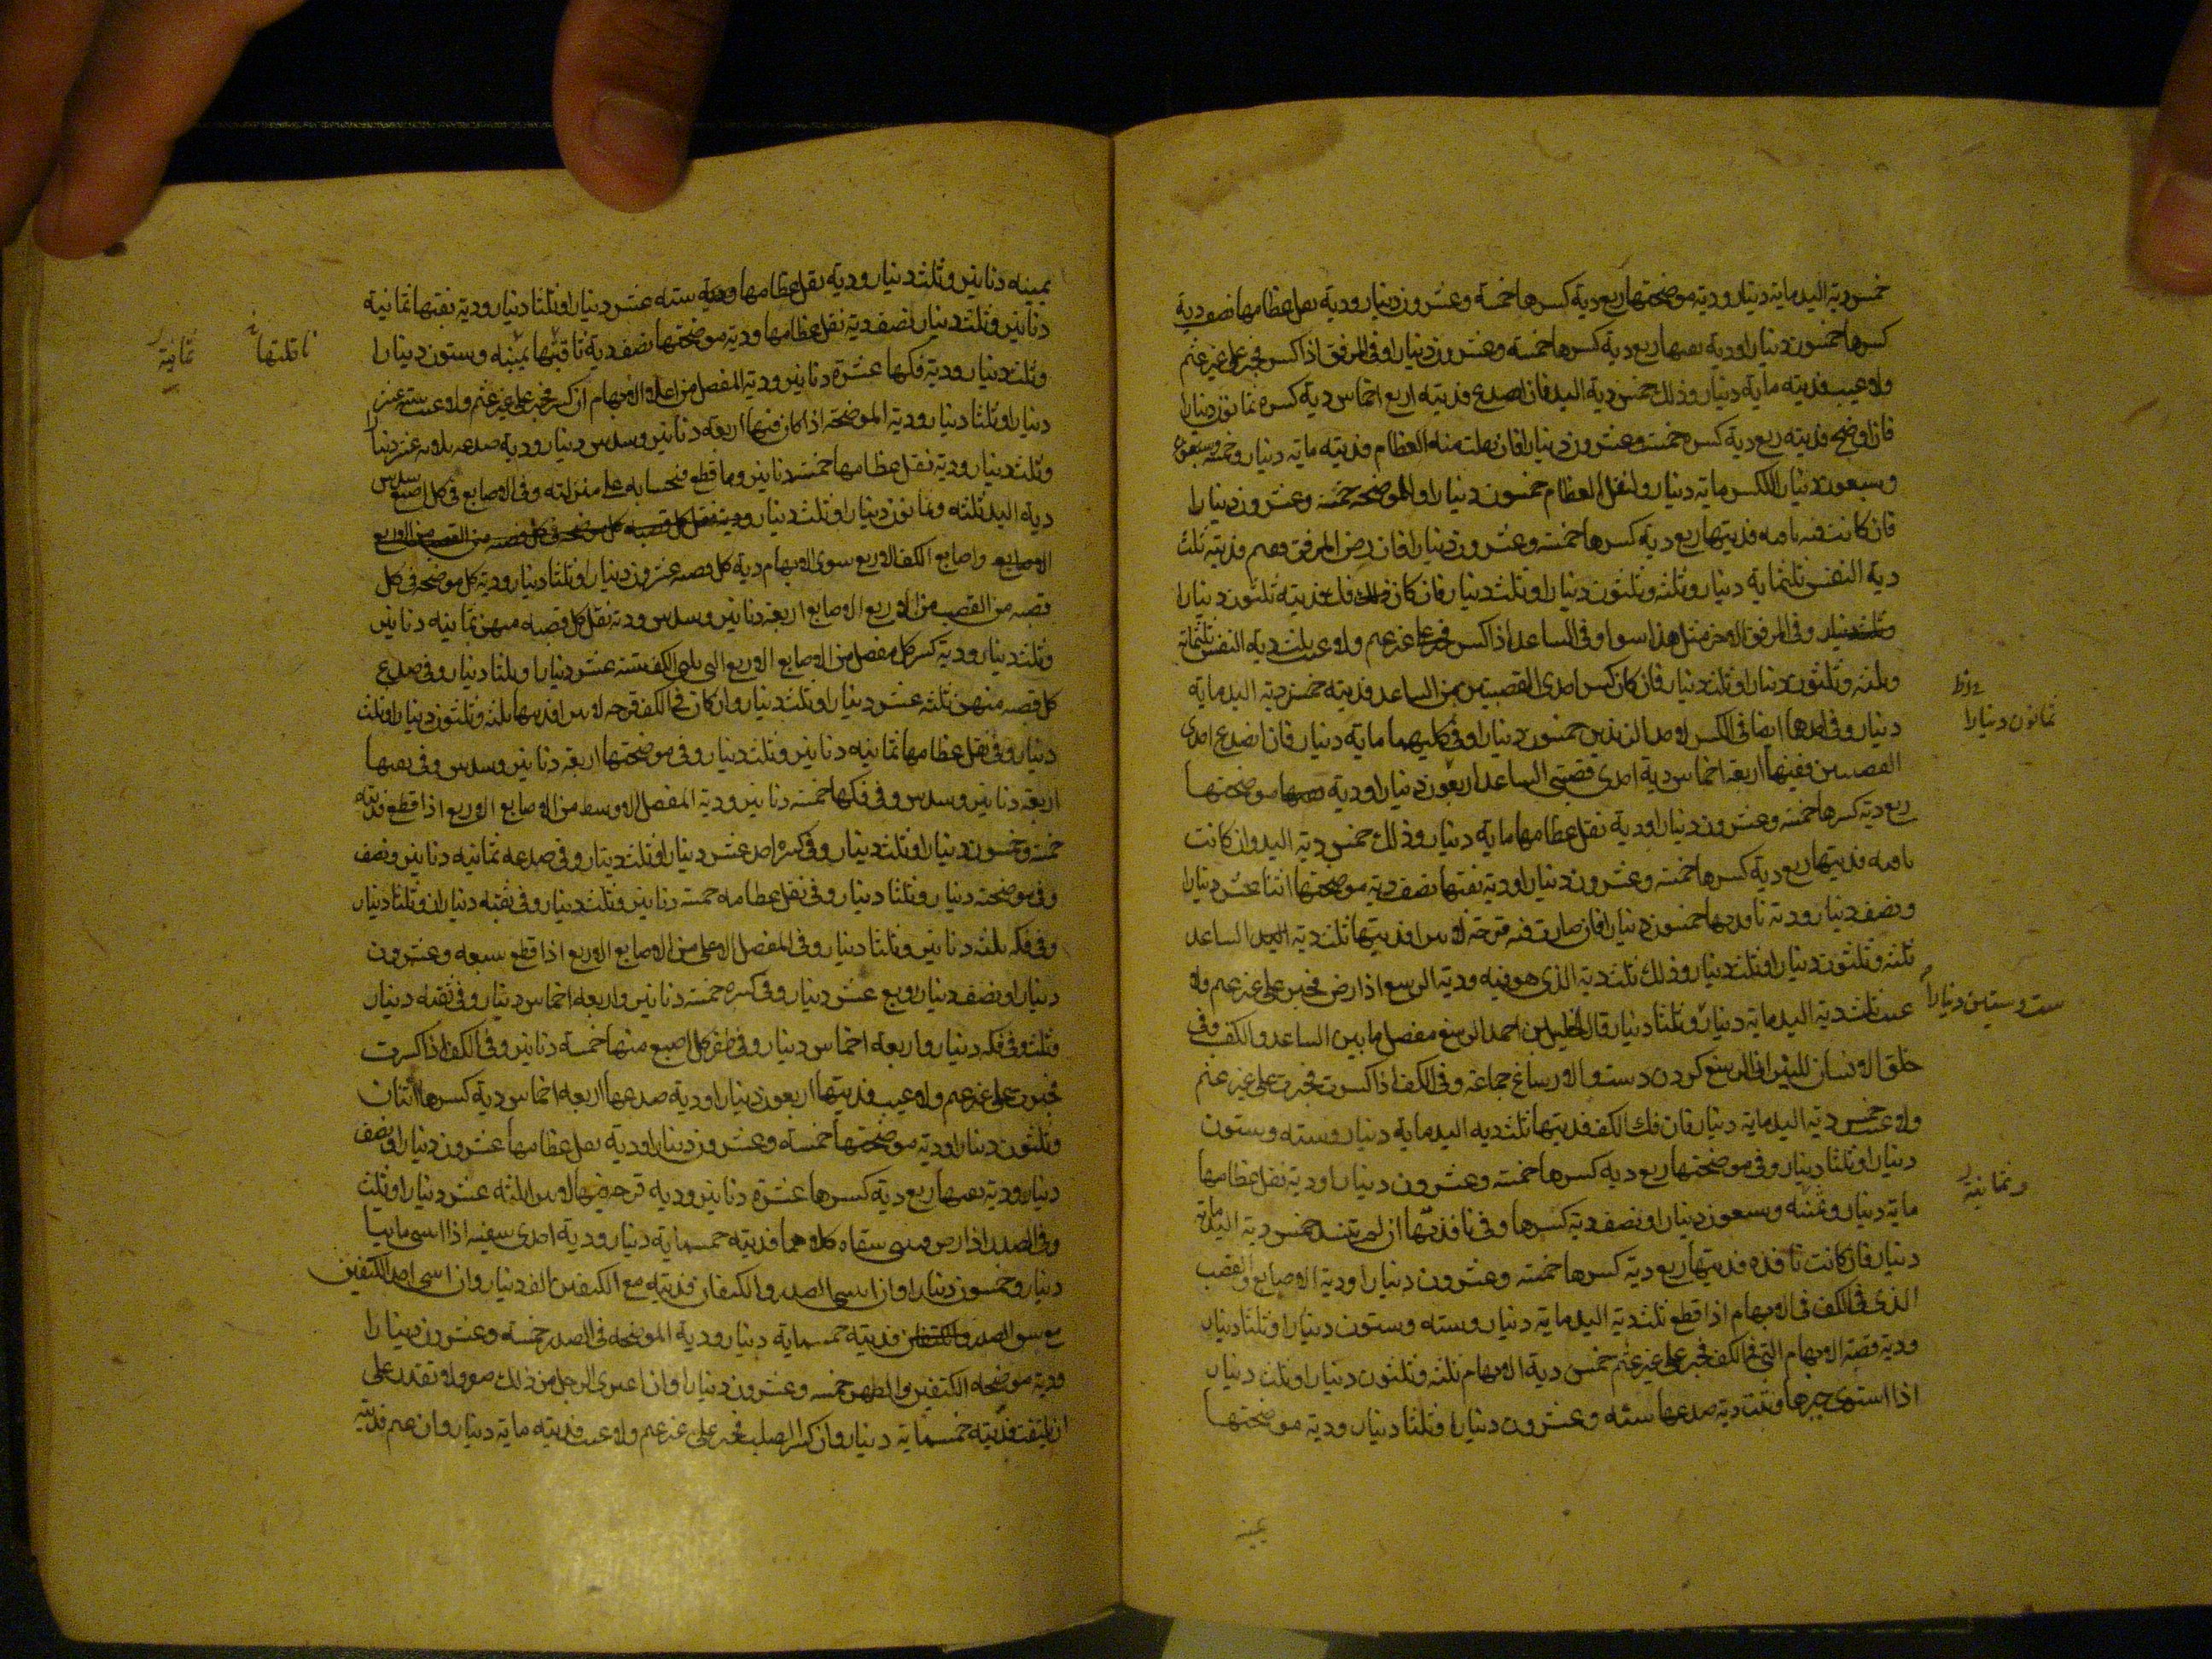 خمس دية اليد ماية دينار ودية موضحتها ربع دية كسرها خمسة وعشرون دينارا ودية نقل عظامها نصف دية
كسرها خمسون دينارا ودية نقبها ربع دية كسرها خمسة وعشرون دينارا وفى المرفق اذا كسر فجبر على غير عثم
ولا عيب فديته ماية دينار وذلك خمس دية اليد فان انصدع فديته اربع اخماس دية كسره ثمانون دينارا
فان اوضح فديته ربع دية كسره خمسة وعشرون دينارا فان نقلت منه العظام فديته ماية دينار وخمسة وسبعون
وسبعون دينارا للكسر ماية دينار ولنقل العظام خمسون دينارا وللموضحة خمسة وعشرون دينارا
فان كانت فيه ناقبة فديتها ربع دية كسرها خمسة وعشرون دينارا فان رض المرفق وعثم فديته ثلث
دية النفس ثلثماية دينار وثلثة وثلثون دينارا وثلث دينار فان كان فك فديته ثلثون دينارا
وفى المرفق الاخر مثل هذا سوا وفى الساعد اذا كسر فجبر على غير عثم ولا عيب ثلث دية النفس ثلثماية
وثلثة وثلثون دينارا وثلث دينار فان كان كسر احدى القصبتين من الساعد فديته خمس دية اليد ماية
دينار وفى احدهما ايضا فى الكسر لاحد الزندين خمسون دينارا وفى كليهما ماية دينار فان انصدع احدى
القصبتين ففيها اربعة اخماس دية احدى قصبتى الساعد اربعون دينارا ودية موضحتها
ربع دية كسرها خمسة وعشرون دينارا ودية نقل عظامها ماية دينار وذلك خمس دية اليد وان كانت
ناقبة فديتها ربع دية كسرها خمسة وعشرون دينارا ودية نقبها نصف دية موضحتها اثنا عشر دينارا
ونصف دينار ودية نافذتها خمسون دينارا فان صارت فيه قرحة لا تبرا فديتها ثلث دية الساعد
ثلثة وثلثون دينارا وثلث دينار وذلك ثلث دية الذى هو فيه ودية الرسغ اذا رض فجبر على غير عثم ولا
عيب ثلث دية اليد ماية دينار وثلثا دينار قال الخليل بن احمد الرسغ مفصل ما بين الساعد والكف وفى
خلق الانسان للنضر ان الرسغ كردن دست والارساغ جماعة وفى الكف اذا كسرت فجبرت على غير عثم
ولا عيب خمس دية اليد ماية دينار فان فك الكف فديتها ثلث دية اليد ماية دينار وستة وستون
دينارا وثلثا دينار وفى موضحتها ربع دية كسرها خمسة وعشرون دينارا ودية نقل عظامها
ماية دينار وثمنية وسبعون دينارا ونصف دية كسرها وفى نافذتها ان لم تنسد خمس دية اليد ماية
دينار فان كانت نافذة فديتها ربع دية كسرها خمسة وعشرون دينارا ودية الاصابع والقصب
الذى فى الكف فى الابهام اذا قطع ثلث دية اليد ماية دينار وستة وستون دينارا وثلثا دينار
ودية قصبة الابهام التى فى الكف فجبر على غير عثم خمس دية الابهام ثلثة وثلثون دينارا وثلث دينار
اذا استوى جبرها وثبت دية صدعها ستة وعشرون دينارا وثلثا دينار ودية موضحتها
ثمانون دينارا
ست وستين دينارا
وثمانية
ثمينة
ثمينة دنانير وثلث دينار ودية نقل عظامها ستة عشر دينارا وثلثا دينار ودية نقبها ثمانية
دنانير وثلث دينار نصف دية نقل عظامها ودية موضحتها نصف دية ناقبتها ثمينه وستون دينارا
وثلث دينار ودية فكها عشرة دنانير ودية المفصل من اعلا الابهام ان كسر فجبر على غير عثم ولا عيب ستة عشر
دينارا وثلثا دينار ودية الموضحة اذا كان فيها اربعة دنانير وسدس دينار ودية صدعه ثلاثة عشر دينارا
وثلث دينار ودية نقل عظامها خمسة دنانير وما قطع فبحسابه على منزلته وفى الاصابع فى كل اصبع سدس
دية اليد ثلثة وثمانون دينارا وثلث دينار
الاصابع واصابع الكف الاربع سوى الابهام دية كل قصبة عشرون دينارا وثلثا دينار ودية كل موضحة فى كل
قصبة من القصب من الاربع الاصابع اربعة دنانير وسدس ودية نقل كل قصبة منهن ثمانية دنانير
وثلث دينار ودية كسر كل مفصل من الاصابع الاربع التى تلى الكف ستة عشر دينارا وثلثا دينار وفى صدع
كل قصبة منهن ثلثة عشر دينارا وثلث دينار وان كان فى الكف قرحة لا تبرا فديتها ثلثة وثلثون دينارا وثلث
دينار وفى نقل عظامها ثمانية دنانير وثلث دينار وفى موضحتها اربعة دنانير وسدس وفى نقبها
اربعة دنانير وسدس وفى فكها خمسة دنانير ودية المفصل الاوسط من الاصابع الاربع اذا قطع فديته
خمسة وخمسون دينارا وثلث دينار وفى كسره احد عشر دينارا وثلث دينار وفى صدعه ثمانية دنانير ونصف
وفى موضحته دينار وثلثا دينار وفى نقل عظامه خمسة دنانير وثلث دينار وفى نقبه ديناران وثلثا دينار
وفى فكه ثلثة دنانير وثلثا دينار وفى المفصل الاعلى من الاصابع الاربع اذا قطع سبعة وعشرون
دينارا ونصف دينار وربع عشر دينار وفى كسره خمسة دنانير واربعة اخماس دينار وفى نقبه دينار
وثلث وفى فكه دينار واربعة اخماس دينار وفى ظفر كل اصبع منها خمسة دنانير وفى الكف اذا كسرت
فجبرت على غير عثم ولا عيب فديتها اربعون دينارا ودية صدعها اربعة اخماس دية كسرها اثنان
وثلثون دينارا ودية موضحتها خمسة وعشرون دينارا ودية نقل عظامها عشرون دينارا ونصف
دينار ودية نقبها ربع دية كسرها عشرة دنانير ودية قرحة فيها لا تبرا ثلثة عشر دينارا وثلث
وفى الصدر اذا رض فثنى شقاه كلاهما فديته خمسماية دينار ودية احدى شقيه اذا انثنى مايتا
دينار وخمسون دينارا وان انثنى الصدر والكتفان فديته مع الكتفين الف دينار وان انثنى احد الكتفين
مع شق الصدر فديته خمسماية دينار ودية الموضحة فى الصدر خمسة وعشرون دينارا
ودية موضحة الكتفين والظهر خمسة وعشرون دينارا وان اعترى الرجل من ذلك صعر ولا يقدر على
ان يلتفت فديته خمسماية دينار وان كسر الصلب فجبر على غير عثم ولا عيب فديته ماية دينار وان عثم فديته
ثمانية